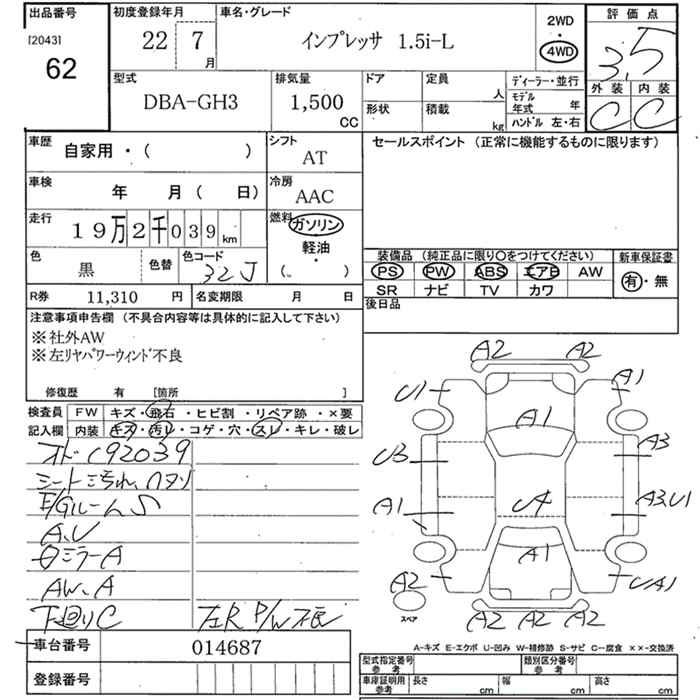 出品番号 初度登録年月 車名・グレード 2WD・4WD 評価点
[2043] 62 22 7月 インプレッサ 1.5i-L 3.5
型式 排気量 ドア 定員 人 ディーラー・並行 外装 内装
DBA-GH3 1,500 CC 形状 積載 kg モデル年式 年 C C
ハンドル 左・右
車歴 自家用・( ) シフト AT セールスポイント (正常に機能するものに限ります)
車検 年 月 ( 日) 冷房 AAC
走行 19万2千039km 燃料 ガソリン
軽油
・
( )
色 黒 色替 色コード 32J
装備品 (純正品に限り〇をつけてください) 新車保証書
PS PW ABS エアB AW 有・無
SR ナビ TV カワ
R券 11,310 円 名変期限 月 日 後日品
注意事項申告欄 (不具合内容等は具体的に記入して下さい)
※社外AW
※左リヤパワーウィンド不良
修復歴 有 [箇所 ]
検査員 FW キズ・飛石・ヒビ割・リペア跡・×要
記入欄 内装 キズ・汚レ・コゲ・穴・スレ・キレ・破レ
オド192039
シート汚れ、
E/Gルーム S
A.U
ミラーA
AW.A
下廻りC 左R P/W不良
車台番号 014687
登録番号
A2 A2
U1 A1 A1
U3 A3
A1 A3.U1
A1
A2 UA1
スペア A2 A2 A2
A-キズ E-エクボ U-凹み W-補修跡 S-サビ C-腐食 ××-交換済
型式指定番号 参考 類別区分番号 参考
車庫証明用 参考 長さ cm 幅 cm 高さ cm